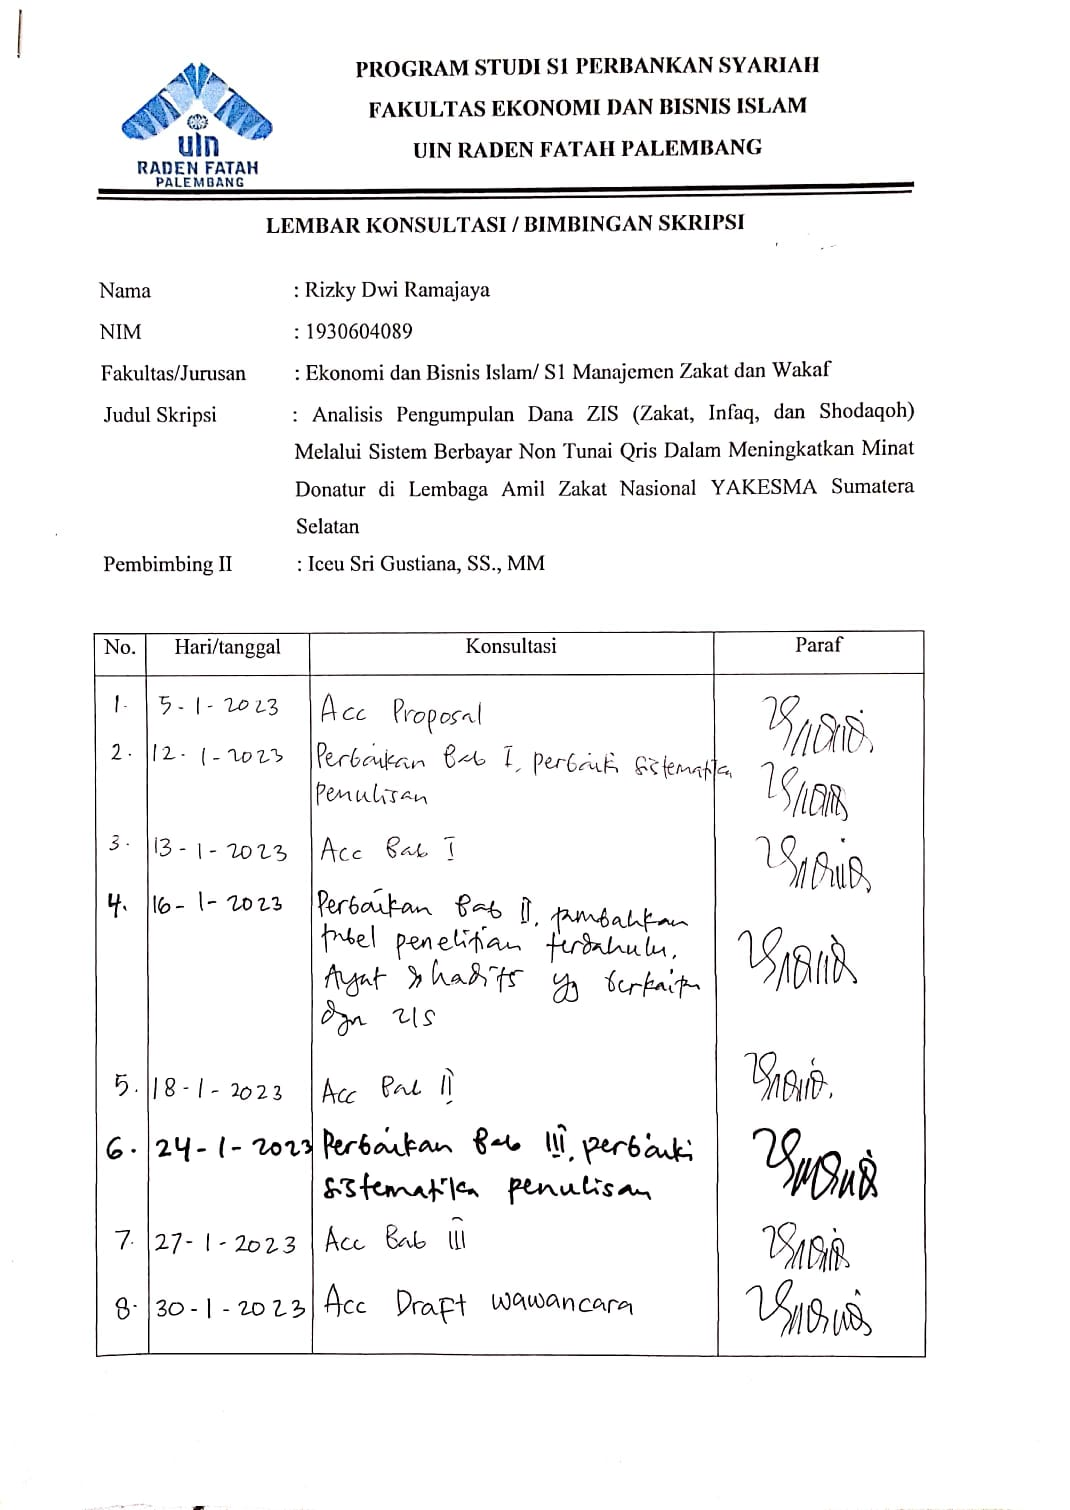 uin
RADEN FATAH
PALEMBANG
PROGRAM STUDI S1 PERBANKAN SYARIAH
FAKULTAS EKONOMI DAN BISNIS ISLAM
UIN RADEN FATAH PALEMBANG
LEMBAR KONSULTASI / BIMBINGAN SKRIPSI
Nama : Rizky Dwi Ramajaya
NIM : 1930604089
Fakultas/Jurusan : Ekonomi dan Bisnis Islam/ S1 Manajemen Zakat dan Wakaf
Judul Skripsi : Analisis Pengumpulan Dana ZIS (Zakat, Infaq, dan Shodaqoh)
Melalui Sistem Berbayar Non Tunai Qris Dalam Meningkatkan Minat
Donatur di Lembaga Amil Zakat Nasional YAKESMA Sumatera
Selatan
Pembimbing II : Iceu Sri Gustiana, SS., MM
No. Hari/tanggal Konsultasi Paraf
1. 5-1-2023 Acc Proposal
2. 12-1-2023 Perbaikan Bab I, perbaiki sistematika
penulisan
3. 13-1-2023 Acc Bab I
4. 16-1-2023 Perbaikan Bab II, tambahkan
tabel penelitian terdahulu,
Ayat & hadits yg berkaitan
dgn ZIS
5. 18-1-2023 Acc Bab II
6. 24-1-2023 Perbaikan Bab III, perbaiki
sistematika penulisan
7. 27-1-2023 Acc Bab III
8. 30-1-2023 Acc Draft wawancara